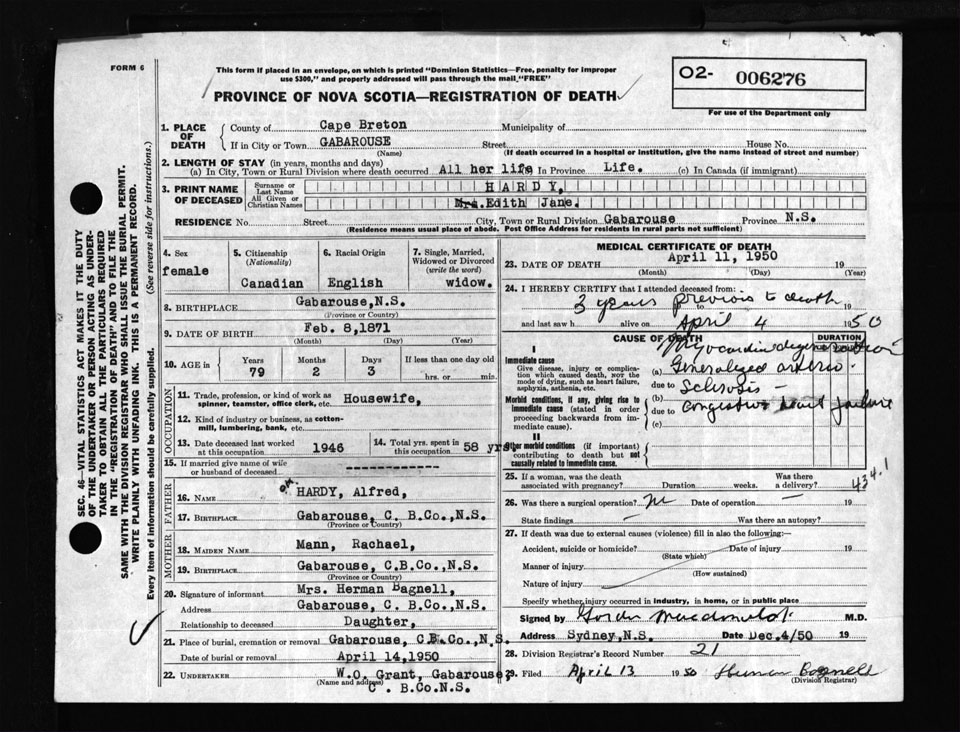 FORM 6
This form if placed in an envelope, on which is printed "Dominion Statistics—Free, penalty for improper
use $300," and properly addressed will pass through the mail, "FREE"
PROVINCE OF NOVA SCOTIA—REGISTRATION OF DEATH
O2- 006276
For use of the Department only
SEC. 46—VITAL STATISTICS ACT MAKES IT THE DUTY
OF THE UNDERTAKER OR PERSON ACTING AS UNDER-
TAKER TO OBTAIN ALL THE PARTICULARS REQUIRED
IN THE "REGISTRATION OF DEATH" AND TO FILE THE
SAME WITH THE DIVISION REGISTRAR WHO SHALL ISSUE THE BURIAL PERMIT.
WRITE PLAINLY WITH UNFADING INK. THIS IS A PERMANENT RECORD.
Every item of information should be carefully supplied. (See reverse side for instructions.)
1. PLACE OF DEATH
County of Cape Breton Municipality of
If in City or Town GABAROUSE Street House No.
(Name) (If death occurred in a hospital or institution, give the name instead of street and number)
2. LENGTH OF STAY (in years, months and days)
(a) In City, Town or Rural Division where death occurred All her life In Province Life. (c) In Canada (if immigrant)
3. PRINT NAME OF DECEASED
Surname or Last Name HARDY,
All Given or Christian Names Mrs.Edith Jane.
RESIDENCE No. Street City, Town or Rural Division Gabarouse Province N.S.
(Residence means usual place of abode. Post Office Address for residents in rural parts not sufficient)
4. Sex
female
5. Citizenship
(Nationality)
Canadian
6. Racial Origin
English
7. Single, Married, Widowed or Divorced
(write the word)
widow.
8. BIRTHPLACE Gabarouse,N.S.
(Province or Country)
9. DATE OF BIRTH Feb. 8,1871
(Month) (Day) (Year)
10. AGE in
Years Months Days If less than one day old
79 2 3 hrs. or min.
OCCUPATION
11. Trade, profession, or kind of work as spinner, teamster, office clerk, etc. Housewife,
12. Kind of industry or business, as cotton-mill, lumbering, bank, etc.
13. Date deceased last worked at this occupation 1946
14. Total yrs. spent in this occupation 58 yrs.
15. If married give name of wife or husband of deceased --------------
FATHER
16. NAME HARDY, Alfred,
17. BIRTHPLACE Gabarouse, C. B.Co.,N.S.
(Province or Country)
MOTHER
18. MAIDEN NAME Mann, Rachael,
19. BIRTHPLACE Gabarouse, C.B.Co.,N.S.
(Province or Country)
20. Signature of informant Mrs. Herman Bagnell,
Address Gabarouse, C. B.Co.,N.S.
Relationship to deceased Daughter,
21. Place of burial, cremation or removal Gabarouse, C.B.Co.,N.S.
Date of burial or removal April 14,1950
22. UNDERTAKER W.O. Grant, Gabarouse,
(Name and address) C. B.Co.N.S.
MEDICAL CERTIFICATE OF DEATH
23. DATE OF DEATH April 11, 1950 19
(Month) (Day) (Year)
24. I HEREBY CERTIFY that I attended deceased from:
3 years previous to death 19
and last saw h alive on April 4 1950
CAUSE OF DEATH DURATION
I
Immediate cause
Give disease, injury or complication which caused death, NOT the mode of dying, such as heart failure, asphyxia, asthenia, etc.
Morbid conditions, if any, giving rise to immediate cause (stated in order proceeding backwards from immediate cause).
II
Other morbid conditions (if important) contributing to death but not causally related to immediate cause.
Myocardial degeneration
(a) Generalized arterio-
due to Sclerosis -
(b)
due to Congestive heart failure
(c)
434.1
25. If a woman, was the death associated with pregnancy? Duration weeks. Was there a delivery?
26. Was there a surgical operation? Date of operation — 19
State findings — Was there an autopsy?
27. If death was due to external causes (violence) fill in also the following:—
Accident, suicide or homicide? Date of injury 19
(State which)
Manner of injury
(How sustained)
Nature of injury
Specify whether injury occurred in industry, in home, or in public place
Signed by Gordon Macdonald M.D.
Address Sydney,N.S. Date Dec.4/50 19
28. Division Registrar's Record Number 21
29. Filed April 13 1950 Herman Bagnell
(Division Registrar)